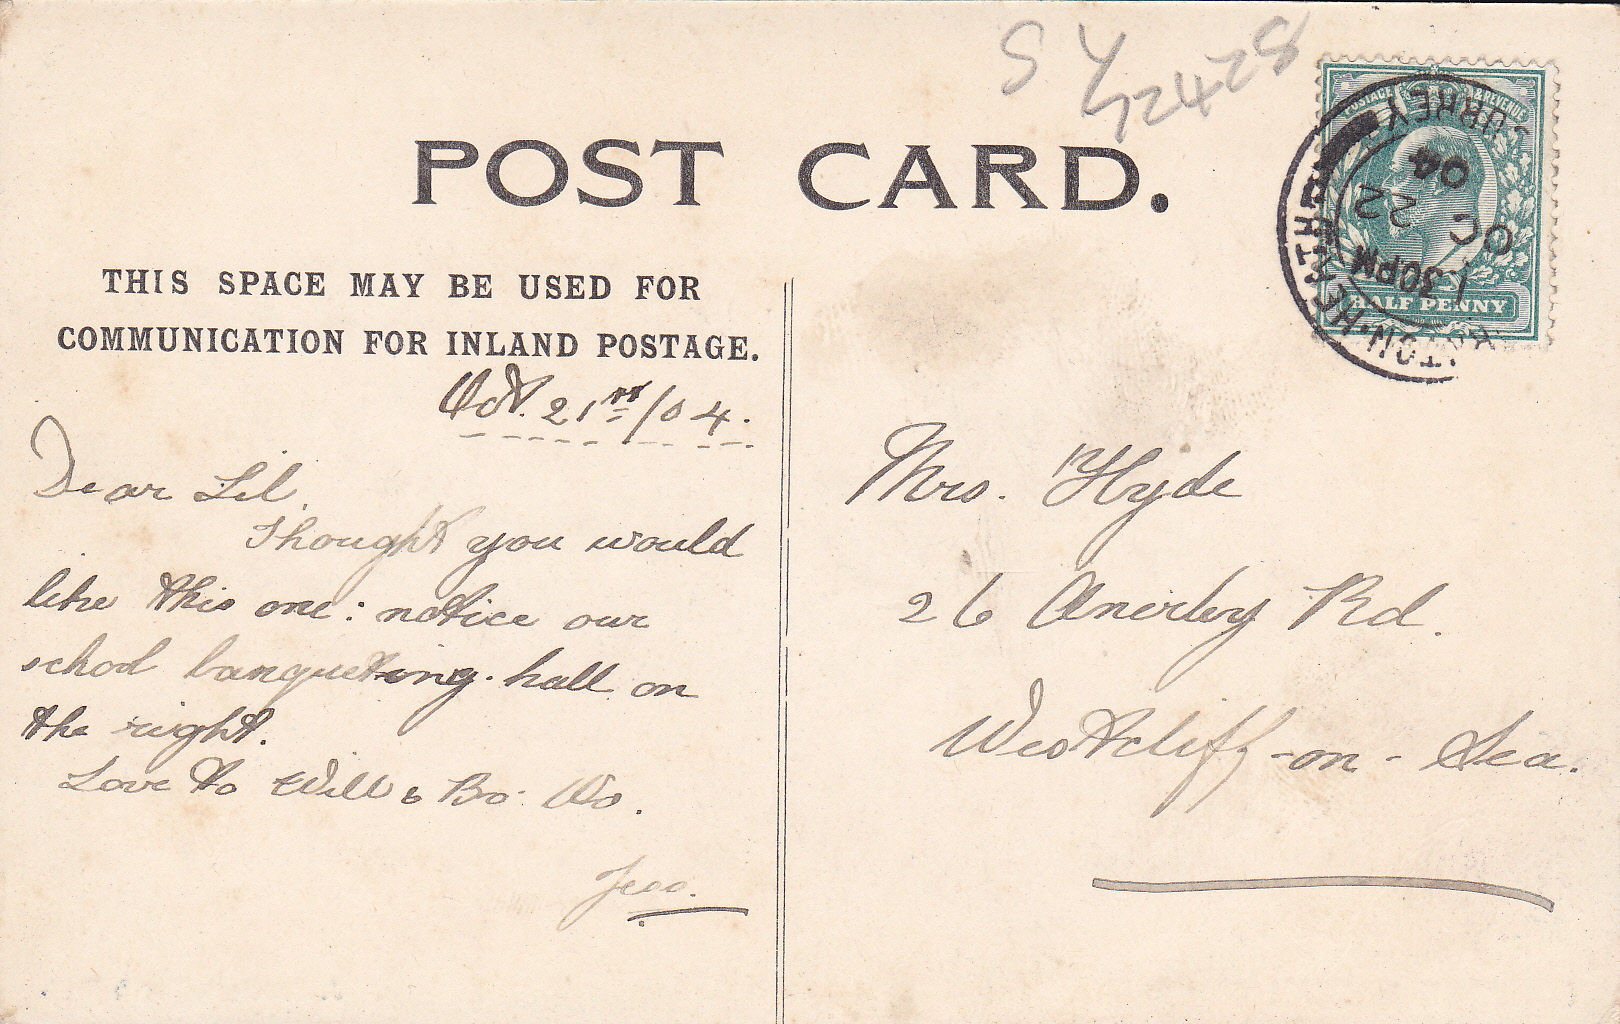 S Y 42428
POST CARD.
POSTAGE & REVENUE
WALTON·HEATH
SURREY
1 30PM
OC 22
04
HALF PENNY
THIS SPACE MAY BE USED FOR
COMMUNICATION FOR INLAND POSTAGE.
Oct. 21st/04.
Dear Lil,
Thought you would
like this one: notice our
school banqueting hall on
the right.
Love to Will & Bo.
Jess.
Mrs. Hyde
26 Anerley Rd.
Westcliff-on-Sea.